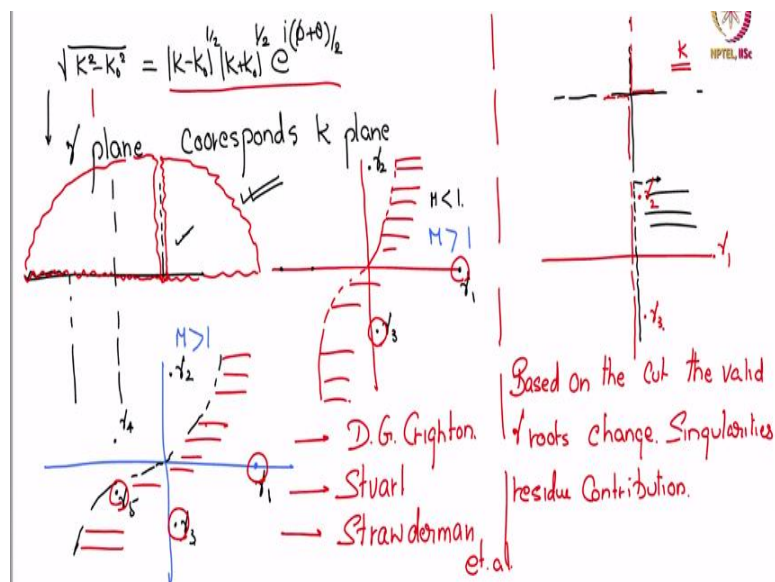 √K²-K₀² = |K-K₀|^1/2 |K+K₀|^1/2 e^i(φ+θ)/2
γ plane Cooresponds K plane
γ₂
M<1.
M>1
γ₁
γ₃
M>1
γ₂
γ₄
γ₁
γ₅
γ₃
→ D.G. Crighton.
→ Stuart
→ Strawderman
et.al
K
NPTEL, IISc
γ₂
γ₁
γ₃
Based on the Cut the valid
γ roots change. Singularities
residue Contribution.